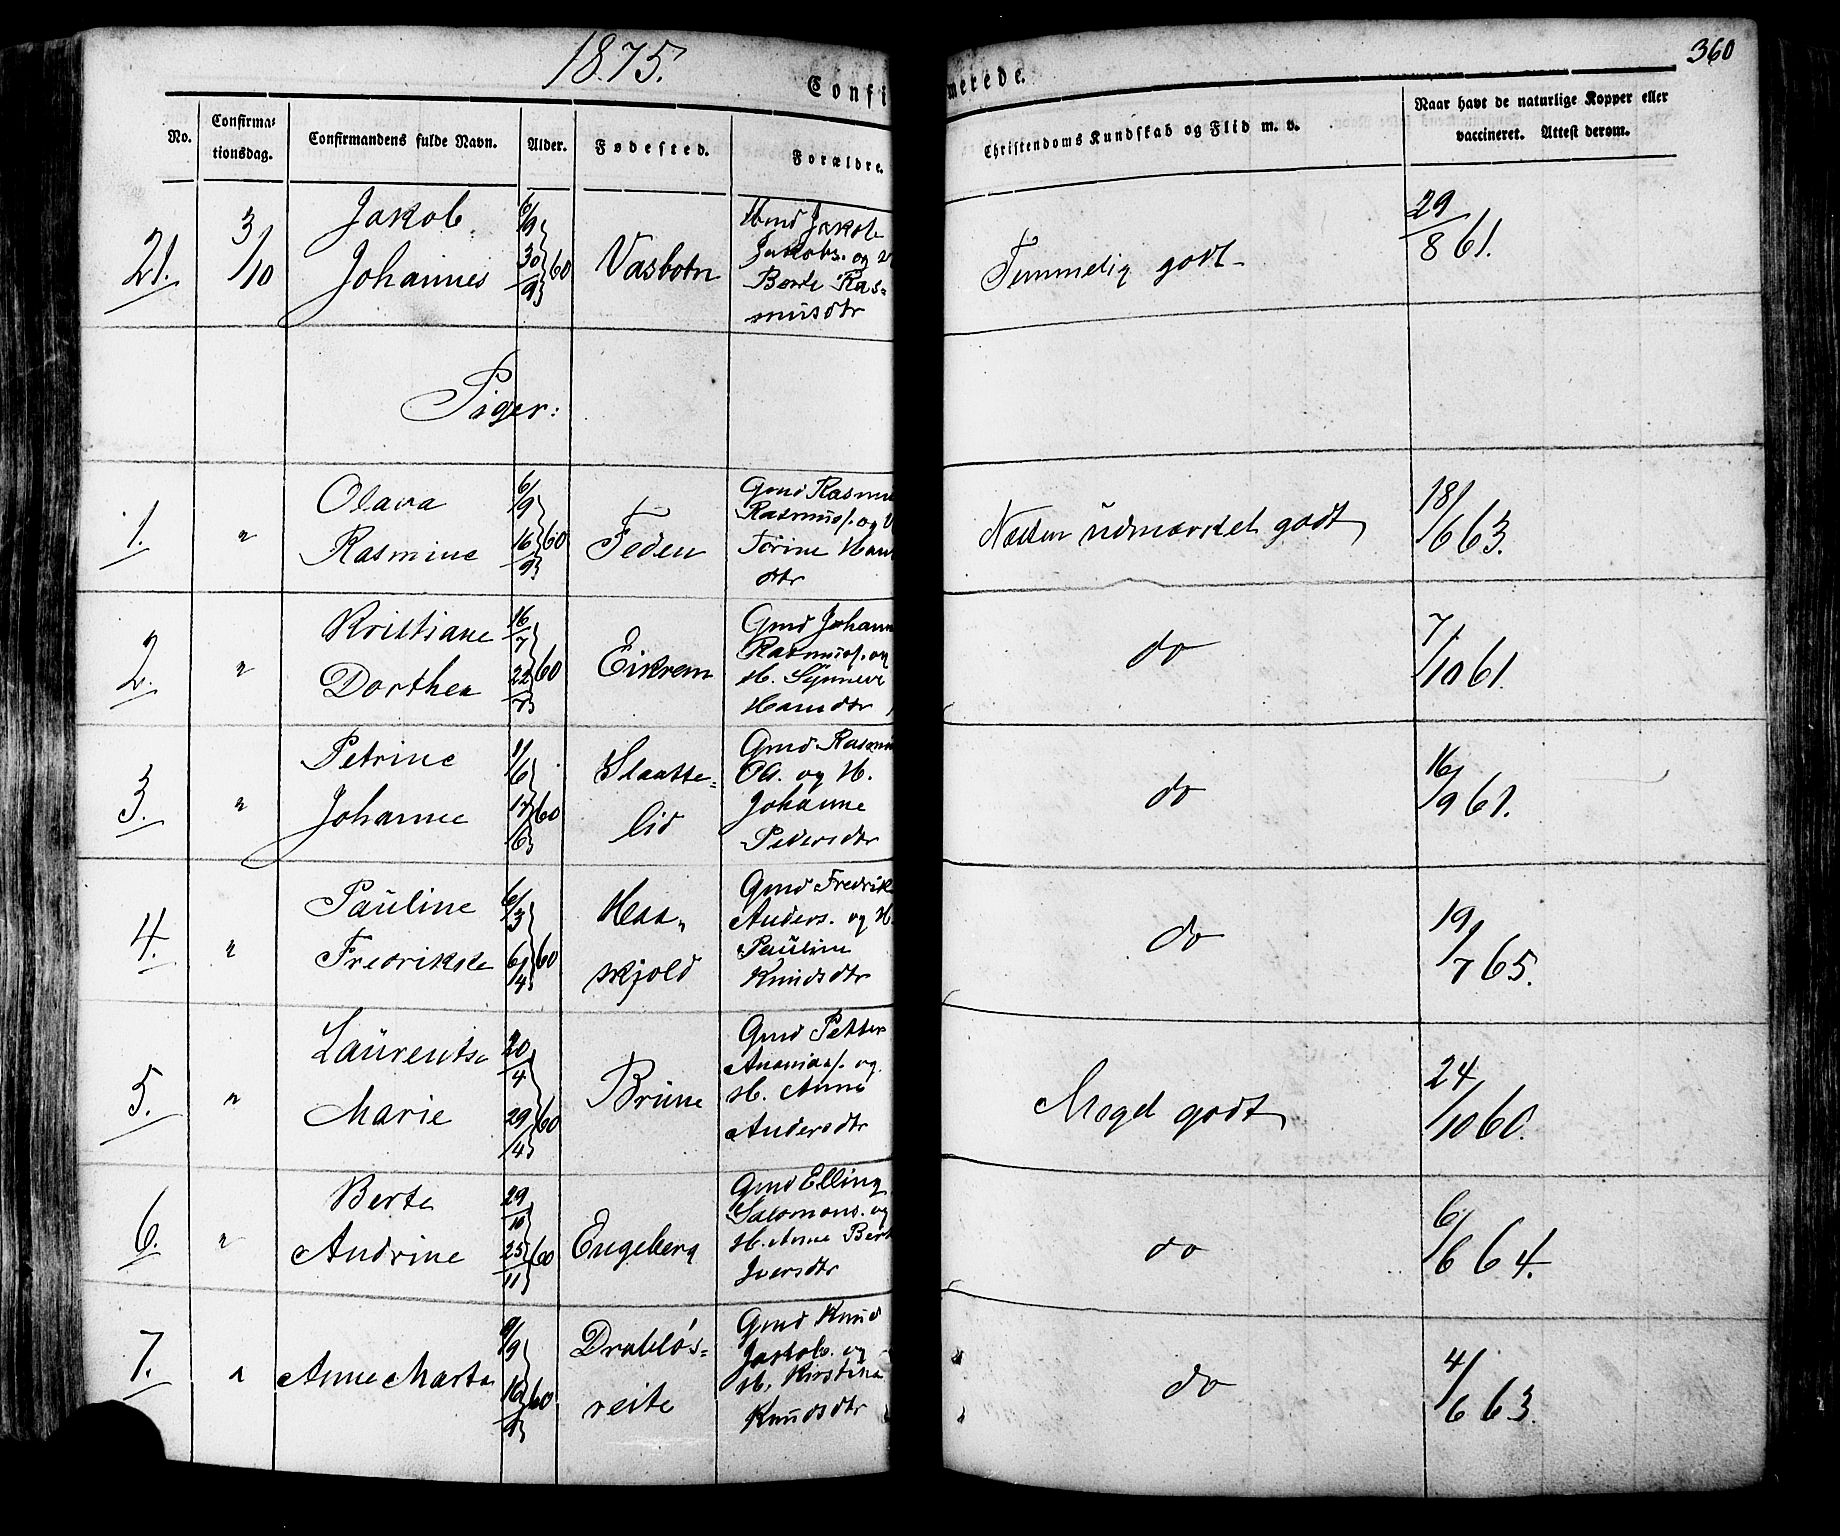 1875.
360
Confirmerede.
No.
Confirma-
tionsdag.
Confirmandens fulde Navn.
Alder.
Fødested.
Forældre.
Christendoms Kundskab og Flid m. v.
Naar havt de naturlige Kopper eller
vaccineret. Attest derom.
21.
3/10
Jakob
Johannes
6/9
30/9 60
Vasbotn
Jakob
Jakobs. og
Berte Ras-
musdtr
Temmelig godt
29/8 61.
Piger:
1.
"
Olava
Rasmine
6/9
16/9 60
Feden
Gmd Rasmu
Rasmuss. og
Torine Han
dtr
Næsten udmærket godt
18/6 63.
2.
"
Kristiane
Dorthea
16/7
22/7 60
Eikrem
Gmd Johann
Rasmuss. og
H. Synneve
Hansdtr
do
7/10 61.
3.
"
Petrine
Johanne
11/6
17/6 60
Slaatte-
lid
Gmd Rasmu
Ols. og H.
Johanne
Petersdtr
do
16/9 61.
4.
"
Pauline
Fredrikke
6/3
6/4 60
Haa-
skjold
Gmd Fredrik
Anders. og H.
Pauline
Knudsdtr
do
19/7 65.
5.
"
Laurentse
Marie
20/4
29/4 60
Brune
Gmd Petter
Ananias. og
H. Anne
Andersdtr
Meget godt
24/10 60.
6.
"
Berte
Andrine
29/10
25/11 60
Engeberg
Gmd Elling
Salomons. og
H. Anne Bert
Iversdtr
do
6/6 64.
7.
"
Anne Marta
9/9
16/9 60
Drabløs-
reite
Gmd Knud
Jakobs. og
H. Kirstina
Knudsdtr
do
4/6 63.